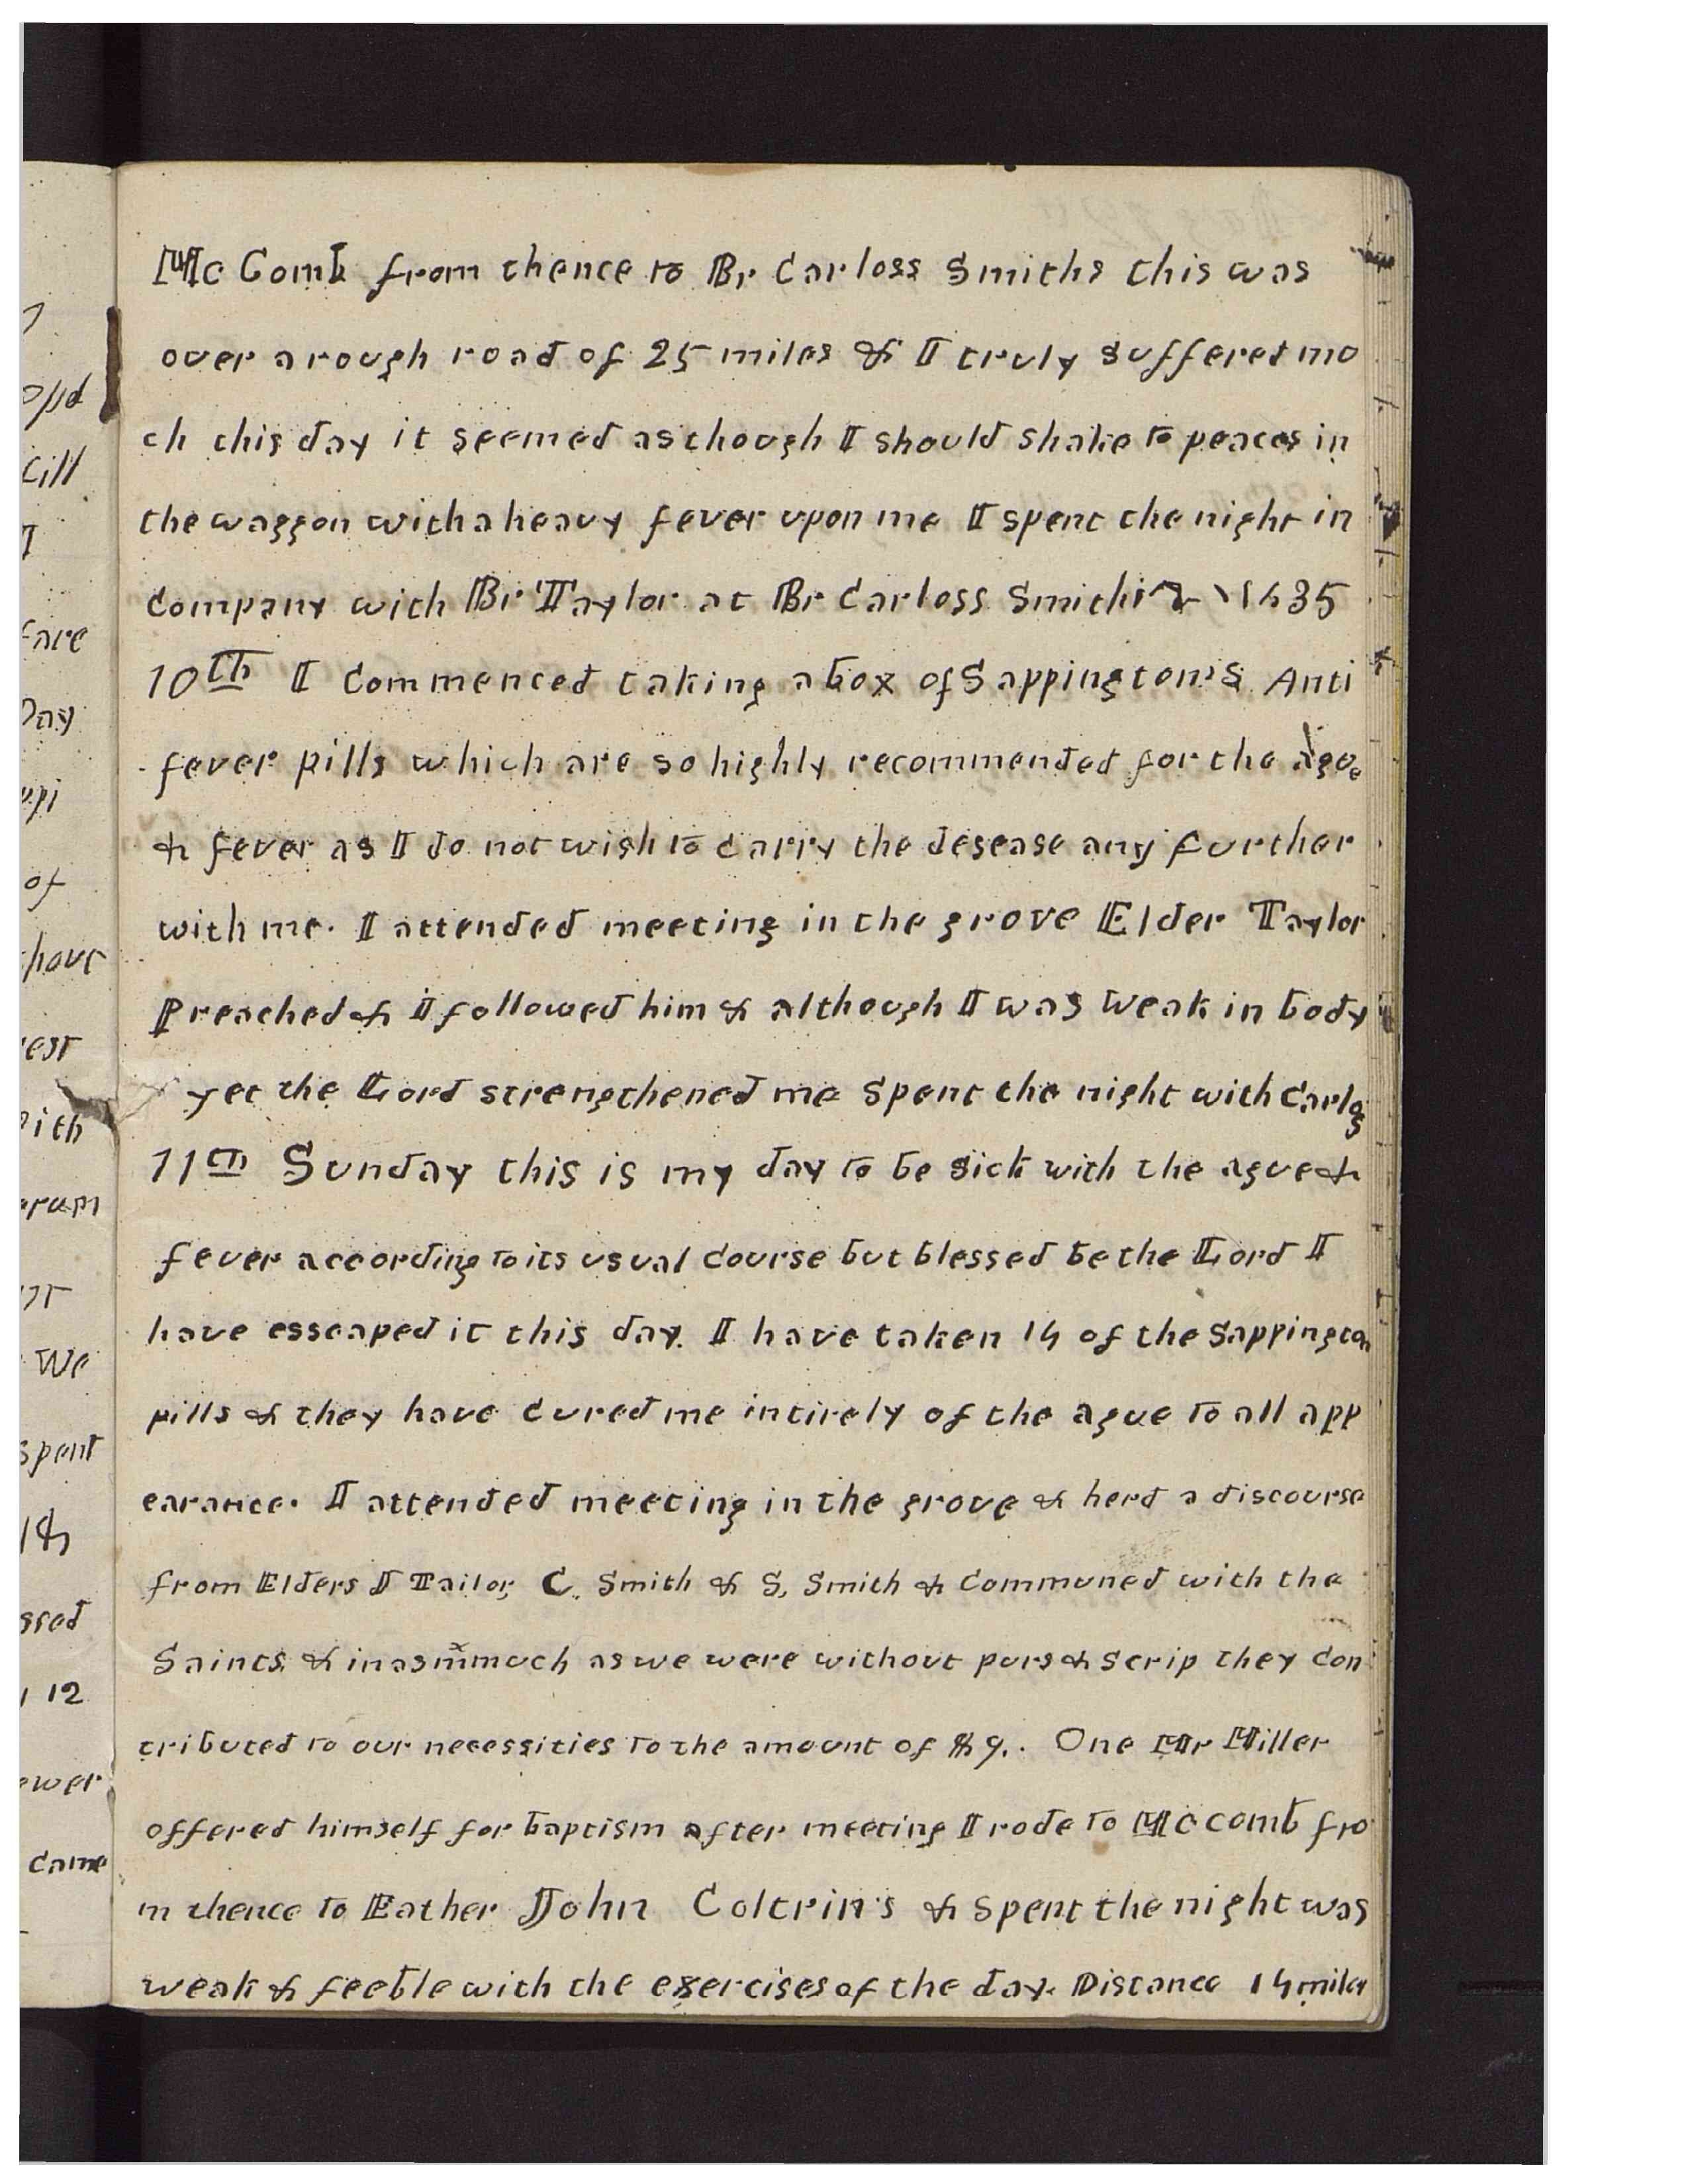 Mc Comb from thence to Br Carloss Smiths this was
over a rough road of 25 miles & I truly suffered mu
ch this day it seemed as though I should shake to peaces in
the waggon with a heavy fever upon me I spent the night in
Company with Br Taylor at Br Carloss Smiths
10th I Commenced taking a box of Sappington's Anti
fever pills which are so highly recommended for the ague
& fever as I do not wish to Carry the desease any further
with me. I attended meeting in the grove Elder Taylor
Preached & I followed him & although I was Weak in body
yet the Lord strengthened me Spent the night with Carlos
11th Sunday this is my day to be sick with the ague &
fever according to its usual Course but blessed be the Lord I
have esscaped it this day. I have taken 14 of the Sappington
pills & they have Cured me intirely of the ague to all app
earance. I attended meeting in the grove & herd a discourse
from Elders J Tailor, C. Smith & S, Smith & Communed with the
Saints & inasmmuch as we were without purs & Scrip they Con
tributed to our necessities to the amount of $9.. One Mr Miller
offered himself for baptism after meeting I rode to Mc comb fro
m thence to Father John Coltrin's & Spent the night was
weak & feeble with the exercises of the day. Distance 14 miles
opd
Cill
I
fare
Day
upi
of
hour
est
ith
arum
We
spent
14
ssed
12
ower
Came